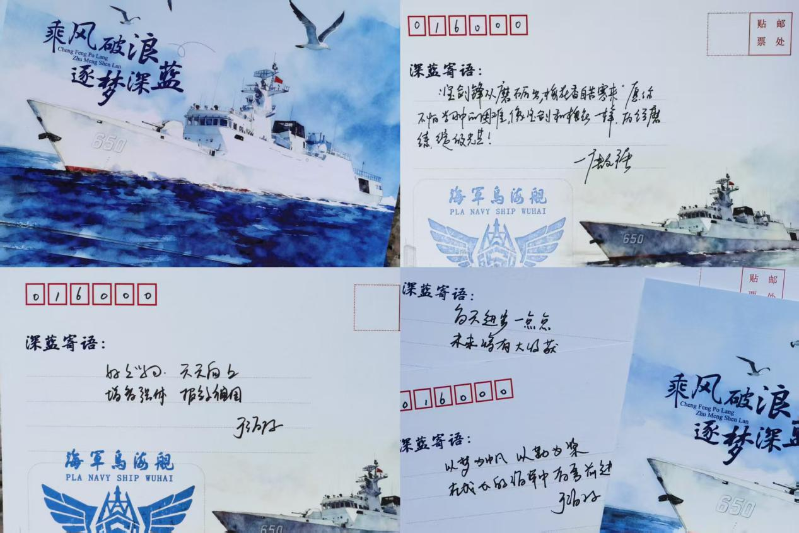 乘风破浪
Cheng Feng Po Lang
Zhu Meng Shen Lan
逐梦深蓝
650
016000
贴 邮
票 处
深蓝寄语:
"宝剑锋从磨砺出,梅花香自苦寒来"愿你
不怕
海军乌海舰
PLA NAVY SHIP WUHAI
650
016000
深蓝寄语:
好好学习 天天向上
增强体 报效祖国
海军乌海舰
PLA NAVY SHIP WUHAI
650
贴 邮
票 处
深蓝寄语:
每天进步一点点
未来将有大收获
016000
深蓝寄语:
以梦为帆 以勤为桨
乘风破浪
Cheng Feng Po Lang
Zhu Meng Shen Lan
逐梦深蓝
650